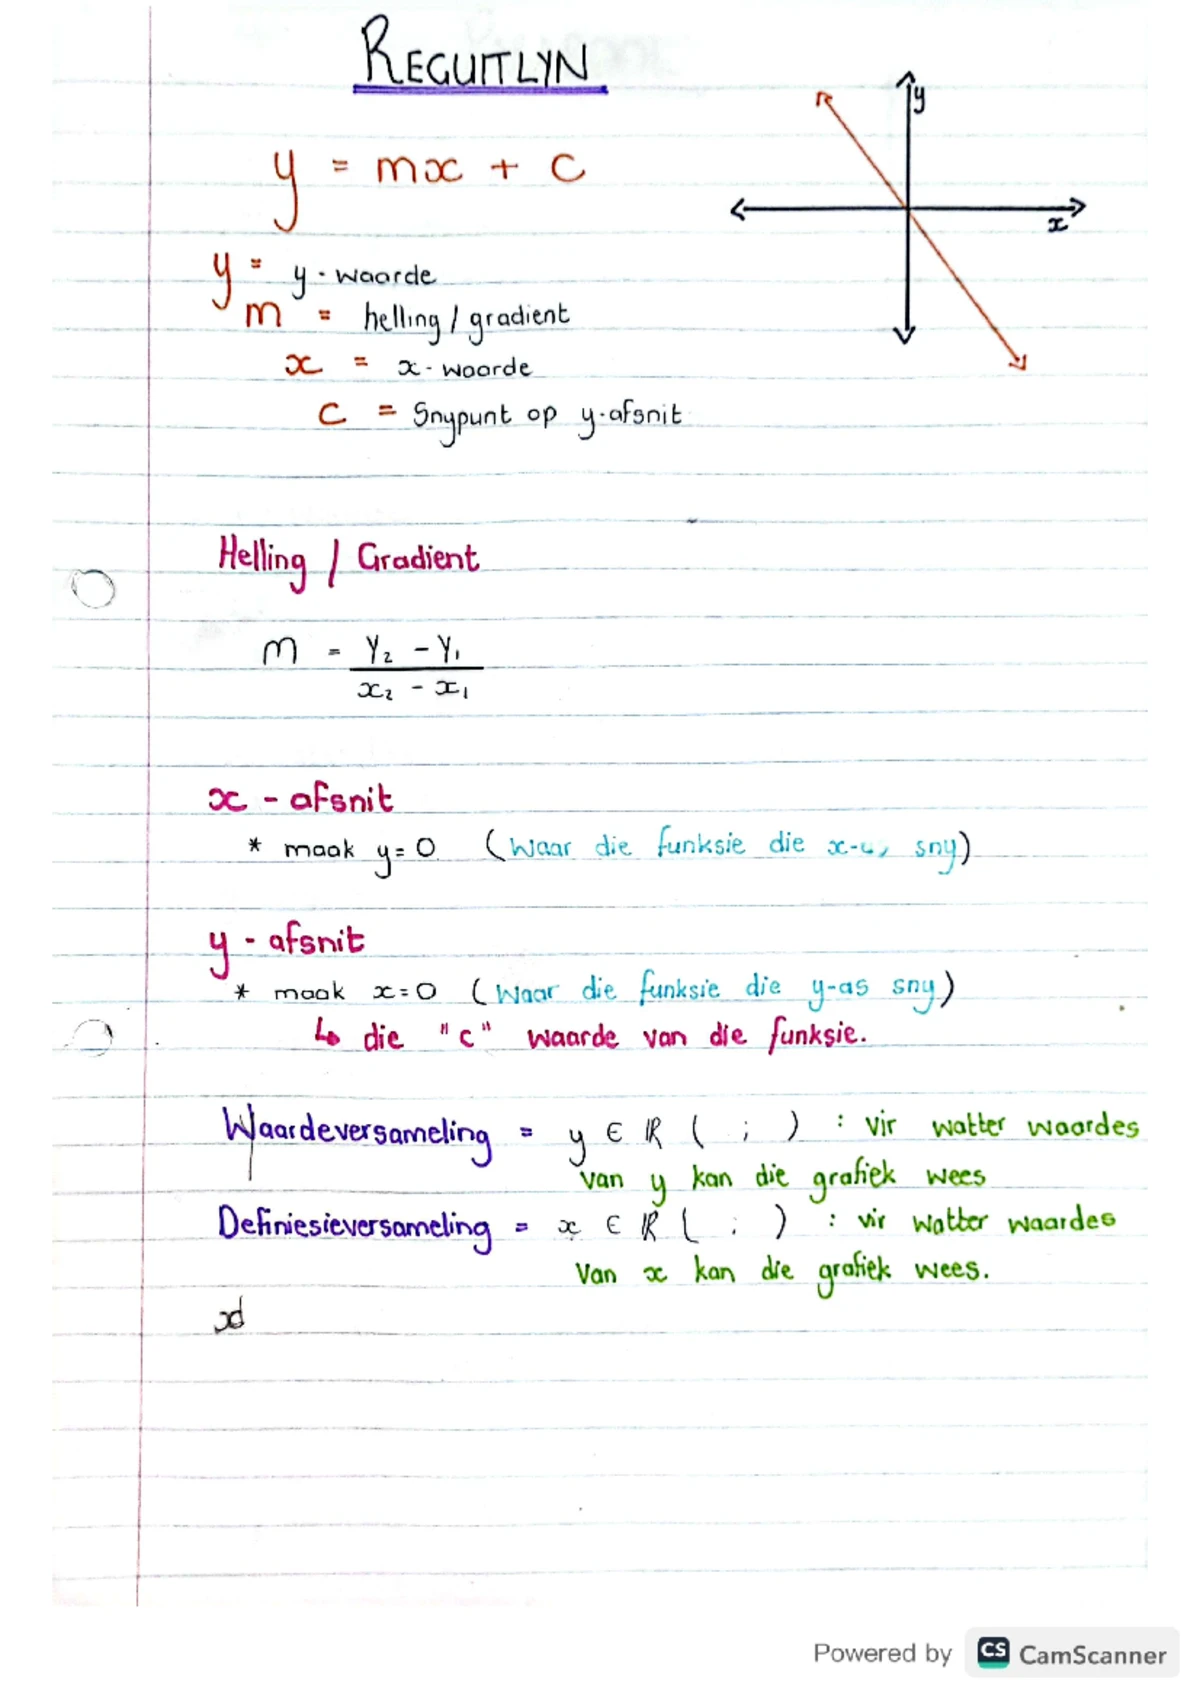 REGUITLYN
y
y = mx + c
x
y = y-waarde
m = helling / gradient
x = x-waarde
c = Snypunt op y-afsnit
Helling / Gradient
m = Y₂ - Y₁
x₂ - x₁
x - afsnit
* maak y = 0 (Waar die funksie die sny)
y - afsnit
* maak x = 0 (Waar die funksie die y-as sny)
↳ die "c" waarde van die funksie.
Waardeversameling = y ∈ ℝ ( ; ) : vir watter waardes
van y kan die grafiek wees
Definiesieversameling = x ∈ ℝ ( ; ) : vir watter waardes
Van x kan die grafiek wees.
Powered by CS CamScanner